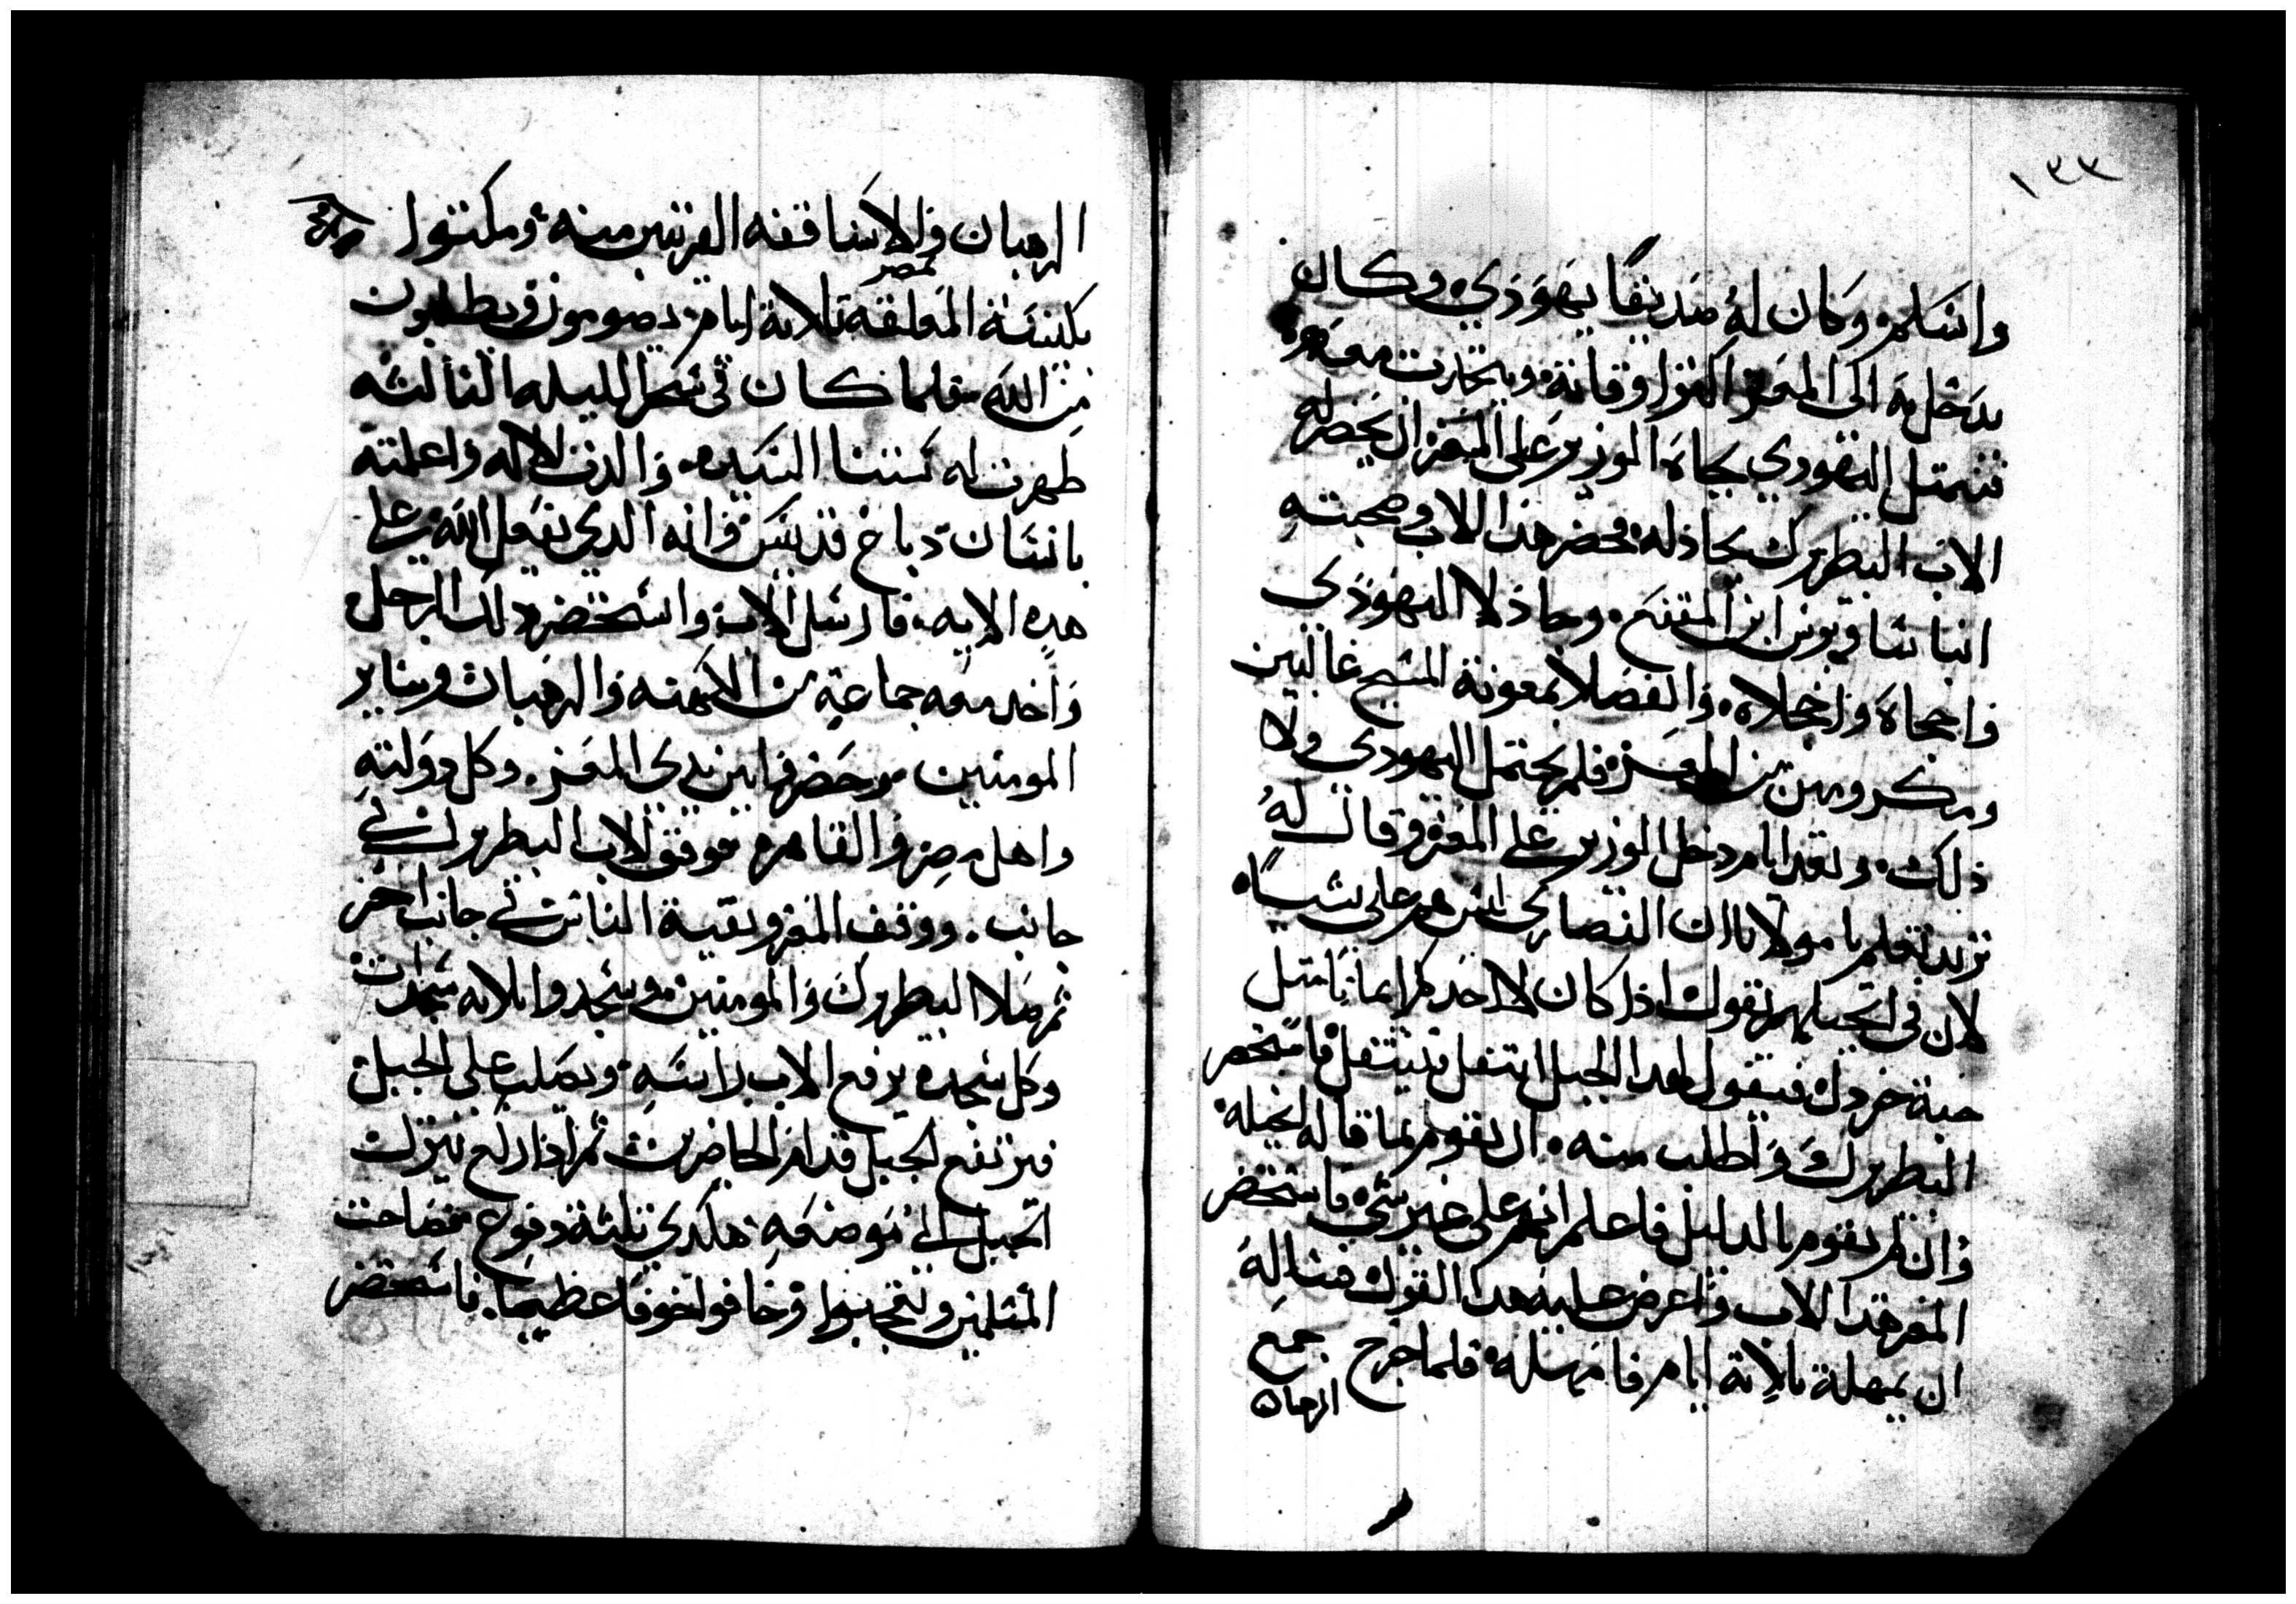 ١٣٣
واسلم وكان له صديقًا يهودي وكان
يدخل به الى المعز اكثر اوقاته ويتحدت معه
فتمتل اليهودي بجاه الوزير على المعز ان يحضر له
الاب البطريرك يجادله فحضر هدا الاب وصحبته
انبا ساويرس ابن المقفع وجادلا اليهودي
واحجاه واخجلاه وانفصلا بمعونة المسيح غالبين
ومكرومين من المعز فلم يحتمل اليهودي ولا
ذلك وبعد ايام دخل الوزير على المعز وقال له
نريد تعلم يا مولانا ان النصارى ليس هم على شيًا
لان في انجيلهم يقول اذا كان لاحدكم ايمانا متل
حبة خردل فيقول لهدا الجبل انتقل فينتقل فاستحضر
البطريرك واطلب منه ان يقوم بما قاله انجيله
وان لم يقوم بالدليل فاعلم انهم على غير شي فاستحضر
المعز هدا الاب واعرض عليه هدا القول فساله
ان يمهله تلاتة ايام فامهله فلما خرج جمع
الرهبان
الرهبان والاساقفه القريبين منه ومكتوا
بكنيسة المعلقة بمصر تلاتة ايام يصومون ويطلبون
من الله فلما كان في سحر الليله التالته
ظهرت له ستنا السيده والدت الاله واعلمته
بانسان دباغ قديس وانه الدي يفعل الله على
هده الايه فارسل الاب واستحضر دلك الرجل
واخد معه جماعة من الكهنه والرهبان وساير
المومنين وحضروا بين يدي المعز وكل دولته
واهل مصر والقاهره فوقف الاب البطريرك في
جانب ووقف المعز وبقية الناس في جانب اخر
ثم صلا البطريرك والمومنين وسجدوا تلاته سجدات
وكل سجده يرفع الاب راسه ويصلب على الجبل
فيرتفع الجبل قدام الحاضرين ثم اذا ركع ينزل
الجبل الى موضعه هكدي تلتة دفوع فصاحت
المسلمين وتعجبوا وخافوا خوفا عظيما فاستحضر